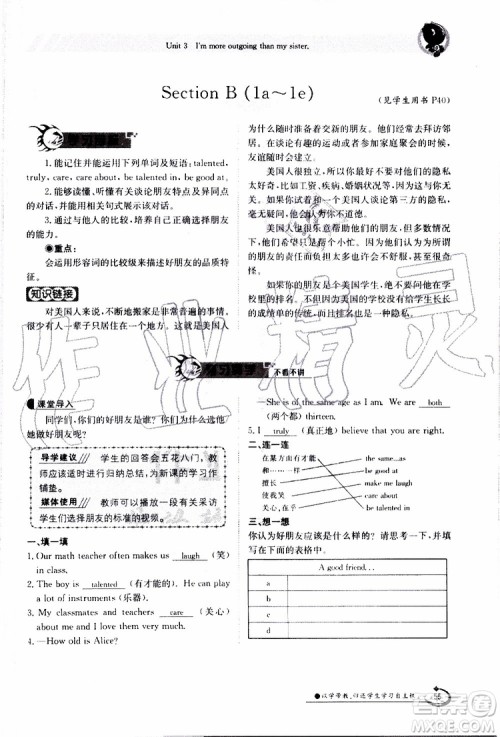 Unit 3 I'm more outgoing than my sister.
Section B (1a～1e)
(见学生用书 P40)
学习目标
1.能记住并能运用下列单词及短语:talented,
truly, care, care about, be talented in, be good at.
2.能够读懂、听懂有关谈论朋友特点及异同点
的对话并能用相关句式展示该对话。
3.通过与他人的比较,培养与朋友友好交往的
方式。
●重点:
会运用形容词的比较级来谈好朋友的品质特征。
知识链接
对美国人来说,不断地搬家是非常普遍的事情,
很少有人一辈子只居住在一个地方。这就是美国人
为什么喜欢结交新的朋友。朋友们会经常去拜访邻
居,在谈论有趣的话题或者参加家庭聚会的时候享
受友谊的快乐。
美国人很少跟他们的朋友谈论自己的私事或者
隐私,比如:年龄、工资、疾病、婚姻状况等,也不问别
人这些情况。美国人不跟别人谈论第三方的私事,
他们觉得谈论别人的隐私,很不道德。
美国人也很乐意帮助朋友,但是他们不想为朋
友的责任而负担太多,所以他们会希望朋友对自己
的事情负责。
如果你的好朋友是美国学生,你可以在假期跟
他谈论你的考试结果。美国的学校将会给学生长长
的暑假,考试结果也是一种隐私。
不看不讲
课堂导入
同学们,你最好的朋友是谁?你能介绍一下他/
她做好朋友呢?
导学建议 学生的回答会五花八门,教
师应该适时进行归纳总结,为新课的学习作
铺垫。
媒体使用 教师可以播放一段有关采访
学生们选择朋友的标准的视频。
一、填一填
1. Our math teacher often makes us laugh (笑)
in class.
2. The boy is talented (有才能的). He can play
a lot of instruments (乐器).
3. My classmates and teachers care (关心)
about me. I love them very much.
4. —How old is Alice?
—She is of the same age as I am. We are both
(两个都) thirteen.
5. I truly (真正地) believe that you are right.
二、连一连
在某方面有才能 the same...as
和……相同 be good at
擅长 make me laugh
关心,在乎 care about
使我笑 be talented in
三、想一想
你认为好朋友应该是什么样的? 请谈谈,并填
写在下面的表格中。
A good friend...
a
b
c
d
以学带教,归还学生学习自主权
55